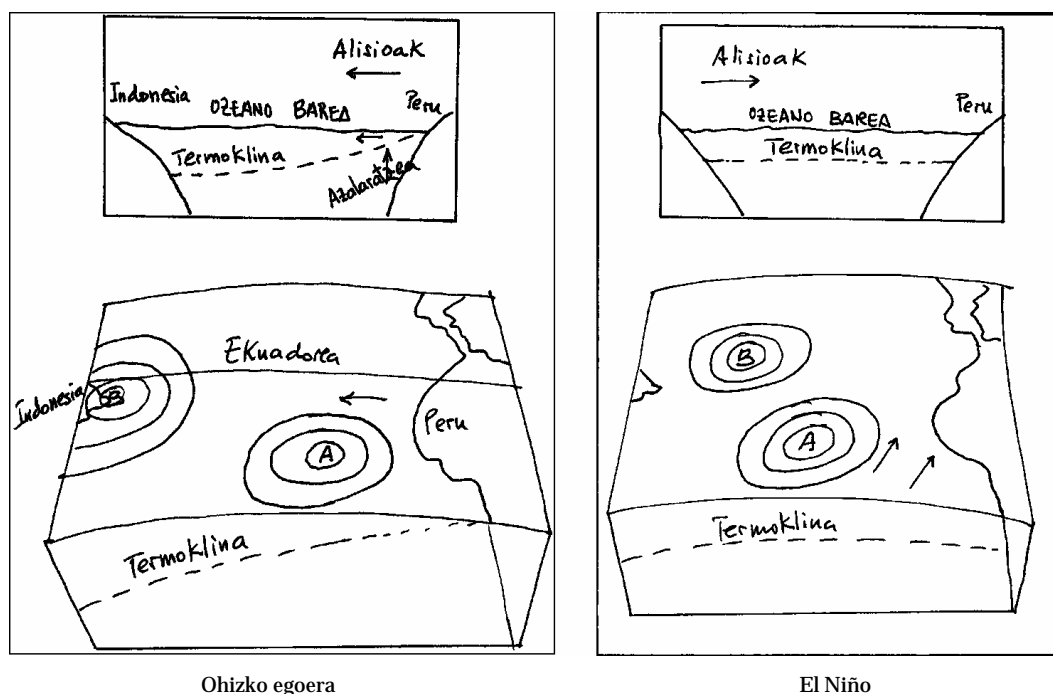 Alisioak
Indonesia
OZEANO BAREA
Peru
Termoklina
Azalaratzea
Ekuadorea
B
Indonesia
A
Peru
Termoklina
Ohizko egoera
Alisioak
Peru
OZEANO BAREA
Termoklina
B
A
Termoklina
El Niño